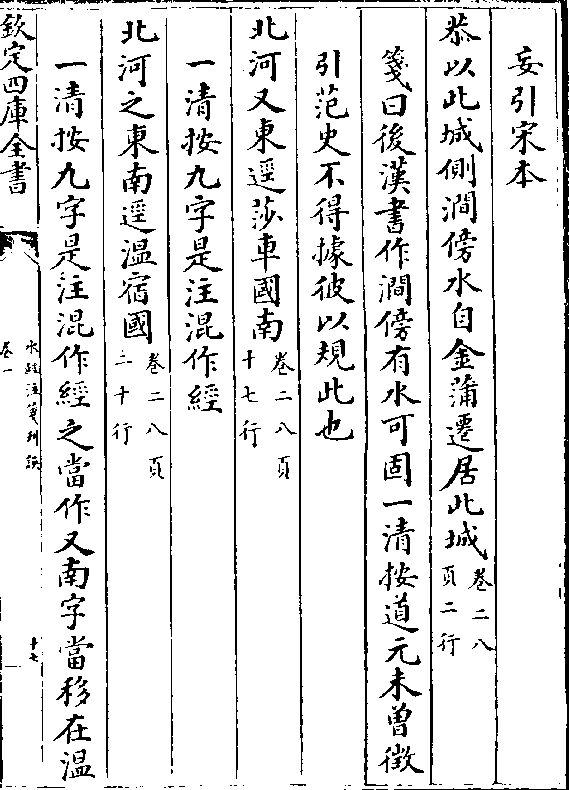 妄引宋本
恭以此城側澗傍水自金蒲遷居此城卷二八頁二行
箋曰後漢書作澗傍有水可固一清按道元未曾徵
引范史不得據彼以規此也
北河又東逕莎車國南卷二八頁十七行
一清按九字是注混作經
北河之東南逕溫宿國卷二八頁二十行
一清按九字是注混作經之當作又南字當移在溫
欽定四庫全書
水經注箋刊誤
卷一
十七